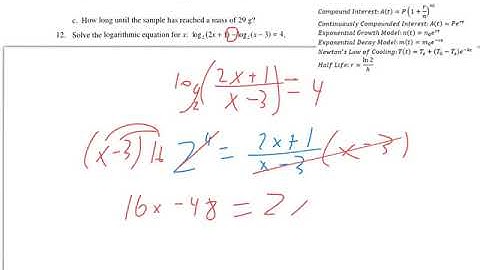 c. How long until the sample has reached a mass of 29 g?
12. Solve the logarithmic equation for x: log₂(2x + 1) − log₂(x − 3) = 4.
Compound Interest: A(t) = P(1 + r/n)^nt
Continuously Compounded Interest: A(t) = Pe^rt
Exponential Growth Model: n(t) = n₀e^rt
Exponential Decay Model: m(t) = m₀e^−rt
Newton's Law of Cooling: T(t) = Tₛ + (T₀ − Tₛ)e^−kt
Half Life: r = ln 2/h
log₂((2x+1)/(x−3)) = 4
(x−3)16 2⁴ = (2x+1)/(x−3) (x−3)
16x − 48 = 2